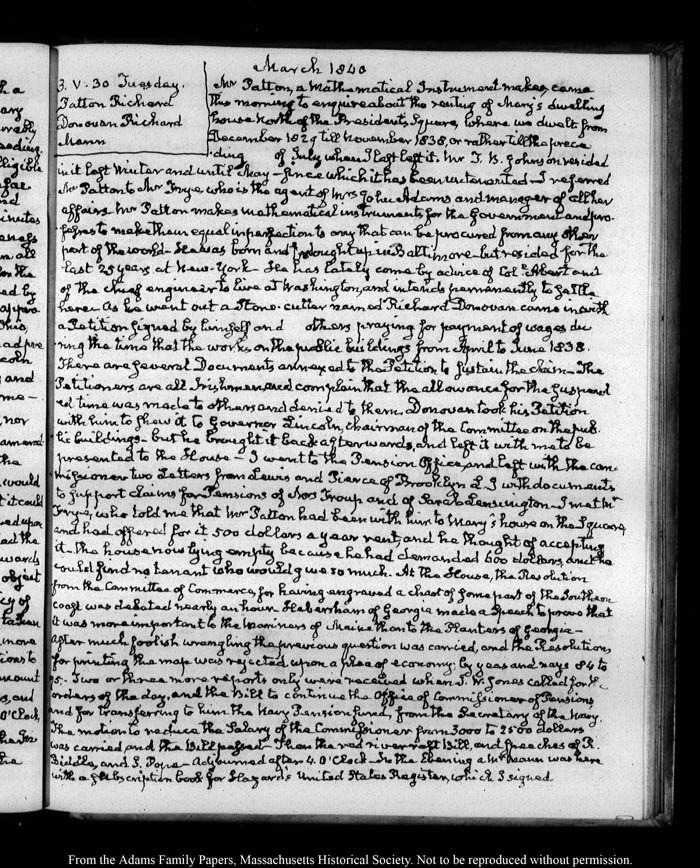 March 1840
3. V. 30 Tuesday.
Patton Richard
Donovan Richard
Mann
Mr Patton, a Mathematical Instrument maker, came
this morning to enquire about the renting of Mary's dwelling
house North of the President's Square, where we dwelt from
December 1829 till November 1838, or rather till the prece
ding of July when I left it. Mr J. W. Johnson resided
in it last Winter and until May—since which it has been untenanted—I referred
Mr Patton to Mr Frye who is the agent of Mrs John Adams and manager of all her
affairs. Mr Patton makes mathematical instruments for the Government and pro-
fesses to make them equal in perfection to any that can be procured from any other
part of the world—He was born and brought up in Baltimore—but resided for the
last 25 years at New-York—He has lately come by advice of Col. Abert and
of the chief engineer to live at Washington, and intends permanently to settle
here—As he went out a Stone-cutter named Richard Donovan came in with
a Petition signed by himself and others praying for payment of wages du
ring the time that the work on the public buildings from April to June 1838.
There are several Documents annexed to the Petition to sustain the claim—The
Petitioners are all Irishmen, and complain that the allowance for the suspend
ed time was made to others and denied to them. Donovan took his Petition
with him to shew it to Governor Lincoln, chairman of the Committee on the pub-
lic buildings—but he brought it back afterwards, and left it with me to be
presented to the House—I went to the Pension Office, and left with the com-
missioner two Letters from Lewis and Pierce of Brooklyn L. I with documents
to support claims for Pensions of Troup and of Sarah Lensington—I met Mr
Frye, who told me that Mr Patton had been with him to Mary's house on the Square,
and had offered for it 500 dollars a year rent, and he thought of accepting
it—the house now lying empty because he had demanded 600 dollars, and he
could find no tenant who would give so much. At the House, the Resolution
from the Committee of Commerce, for having engraved a chart of some part of the Southern
coast was debated nearly an hour. Habersham of Georgia made a Speech to prove that
it was more important to the Mariners of Maine than to the Planters of Georgia—
After much foolish wrangling the previous question was carried, and the Resolution,
for printing the map was rejected upon a plea of economy: by yeas and nays 84 to
95.—Two or three more reports only were received when J. W. Jones called for the
orders of the day, and the Bill to continue the Office of Commissioner of Pensions
and for transferring to him the Navy Pension fund, from the Secretary of the Navy.
The motion to reduce the Salary of the Commissioner from 3000 to 2500 dollars
was carried and the Bill passed—Then the red river raft Bill, and speeches of R.
Biddle, and J. Pope—Adjourned after 4. O'Clock—In the Evening a Mr Mann was here
with a subscription book for Hazard's United States Register, which I signed.
From the Adams Family Papers, Massachusetts Historical Society. Not to be reproduced without permission.